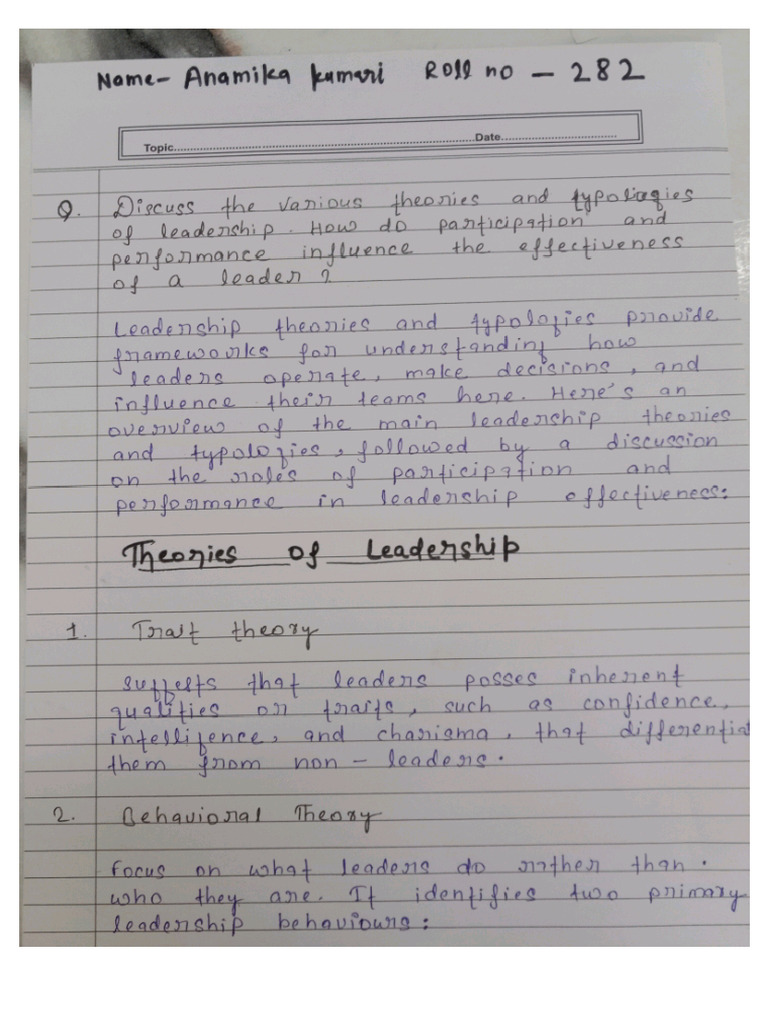 Name- Anamika kumari Roll no - 282
Topic..........Date..........
Q. Discuss the various theories and typologies
of leadership. How do participation and
performance influence the effectiveness
of a leader ?
Leadership theories and typologies provide
frameworks for understanding how
leaders operate, make decisions, and
influence their teams here. Here's an
overview of the main leadership theories
and typologies, followed by a discussion
on the roles of participation and
performance in leadership effectiveness:
Theories of Leadership
1. Trait theory
suggests that leaders posses inherent
qualities or traits, such as confidence,
intelligence, and charisma, that differentiat
them from non - leaders.
2. Behavioral Theory
Focus on what leaders do rather than.
who they are. It identifies two primary
leadership behaviours: